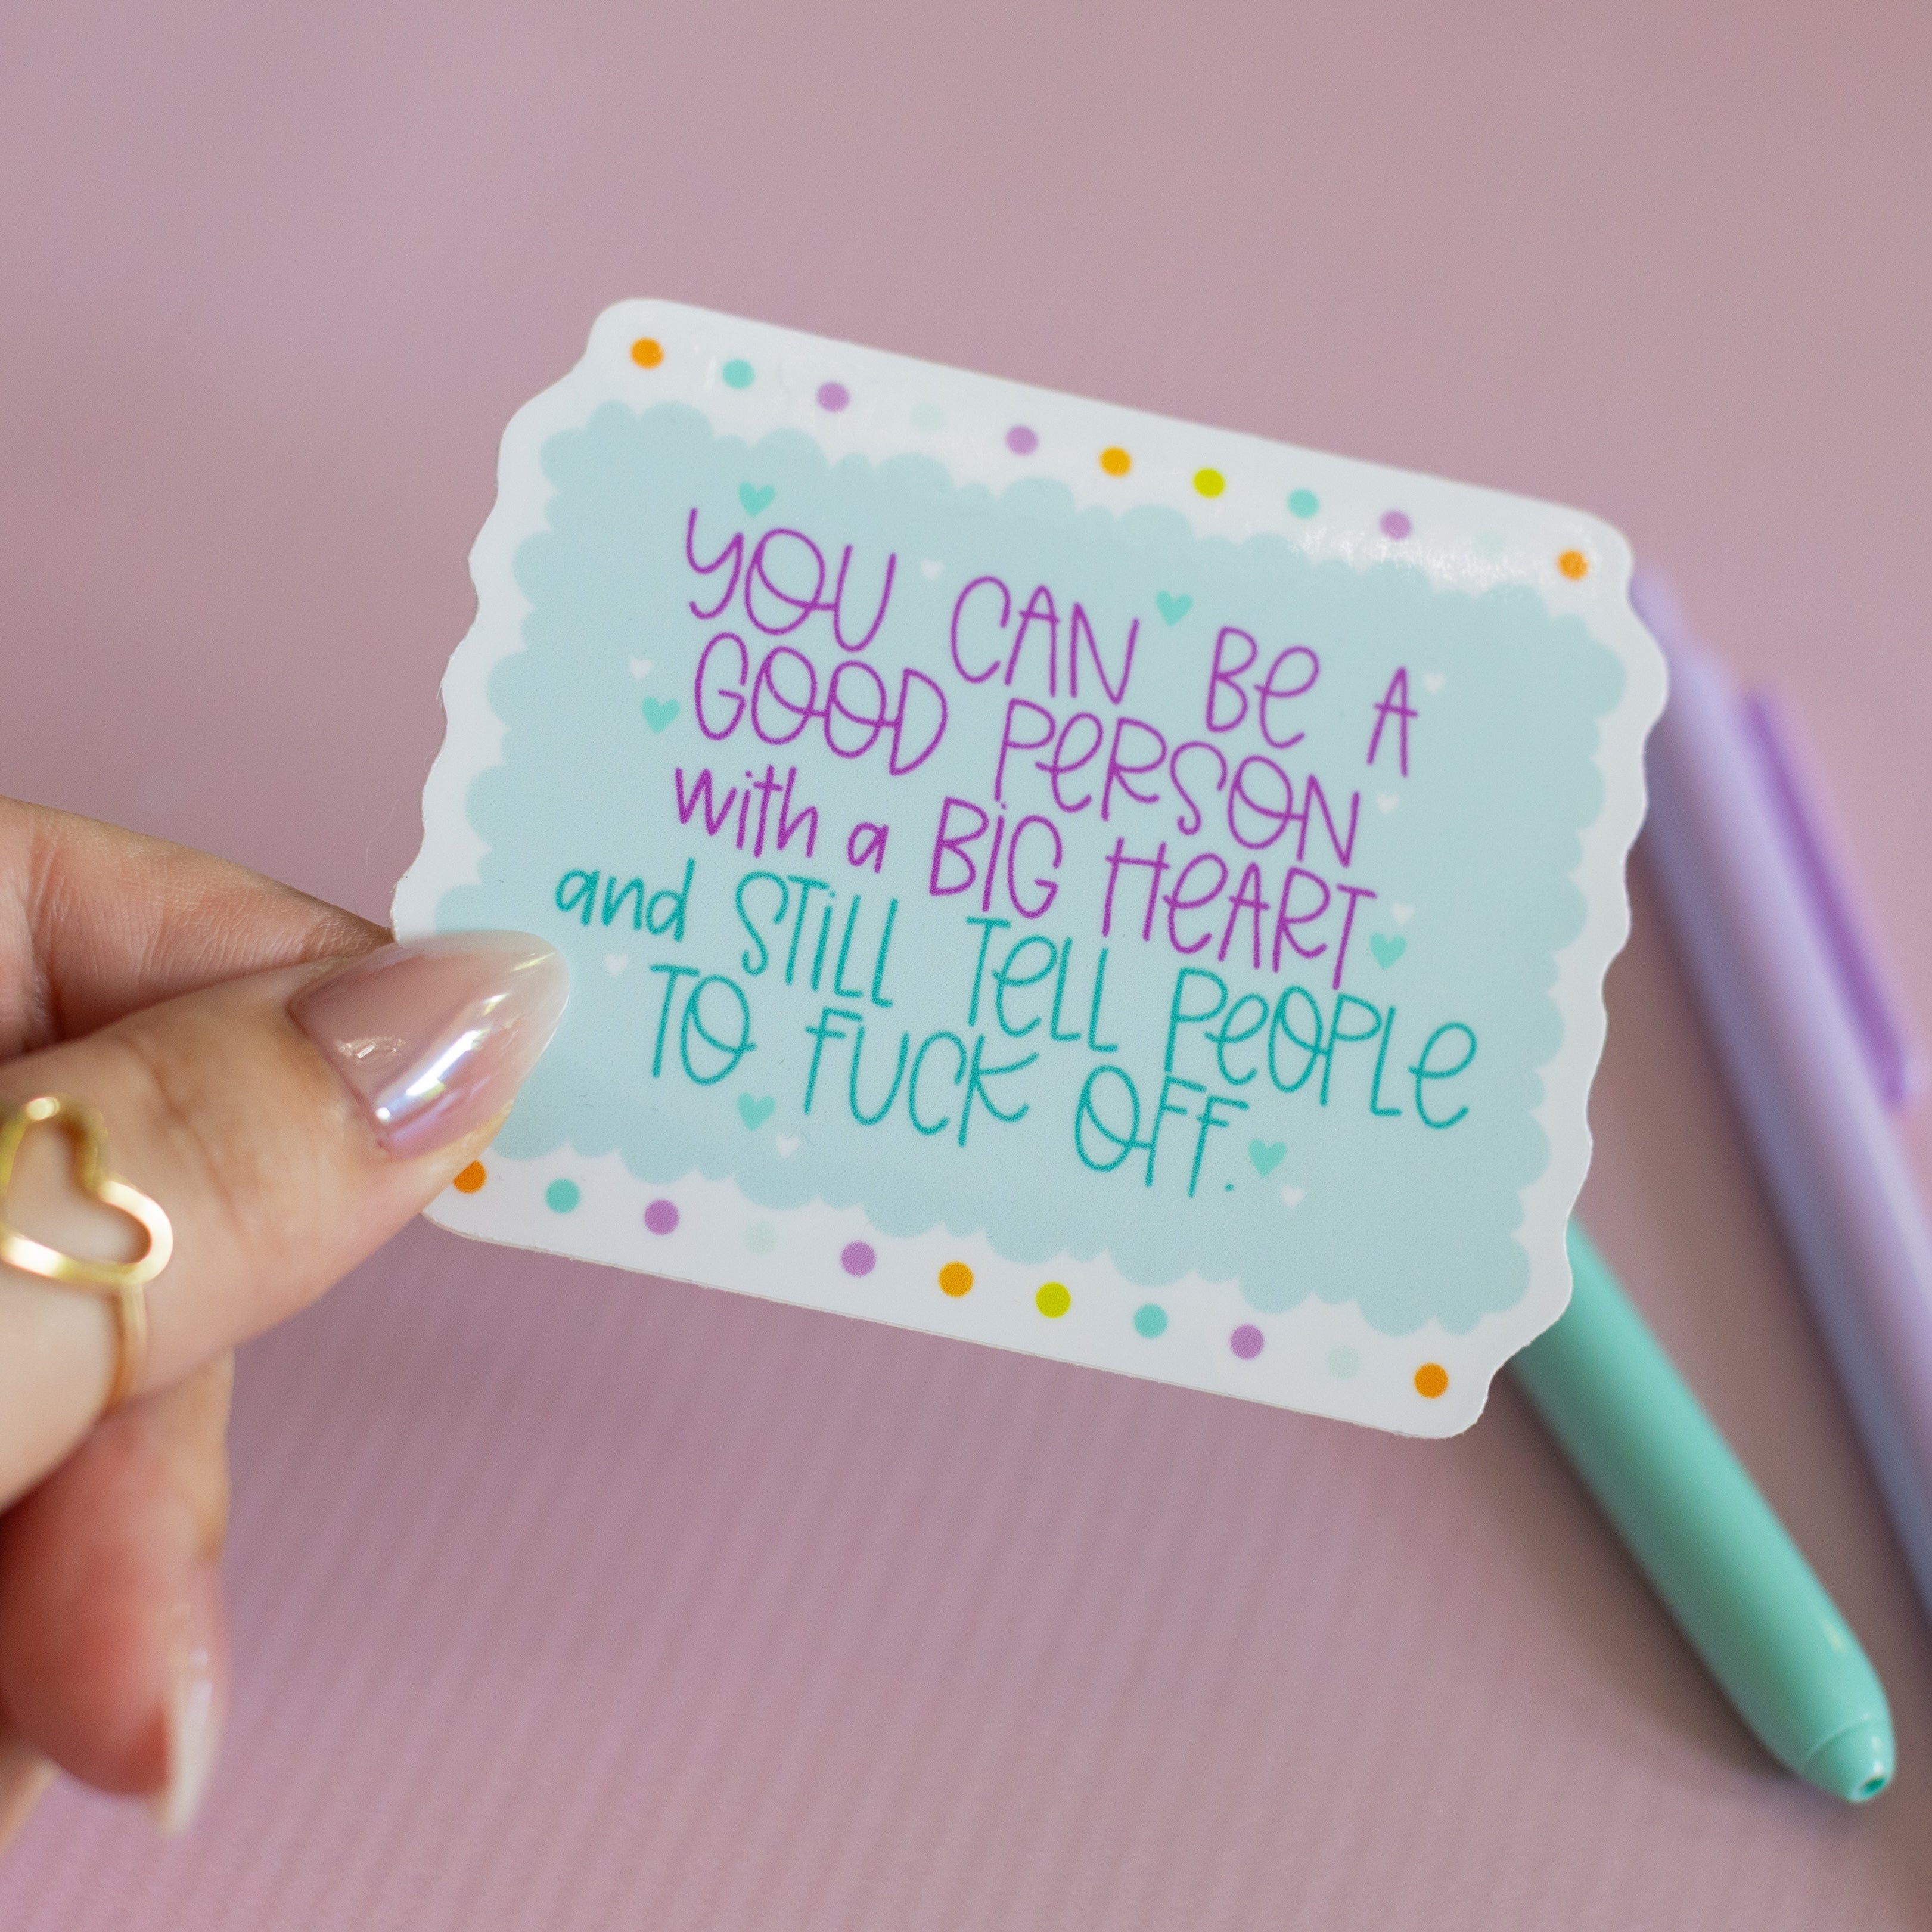 YOU CAN BE A
GOOD PERSON
with a BiG HEART
and STiLL TELL PEOPLE
TO FUCK OFF.